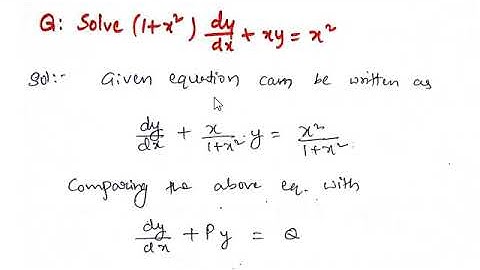 Q: Solve (1+x²) dy/dx + xy = x²
Sol:- Given equation cam be written as
dy/dx + x/1+x² .y = x²/1+x² .
Comparing the above eq. with
dy/dx + Py = Q